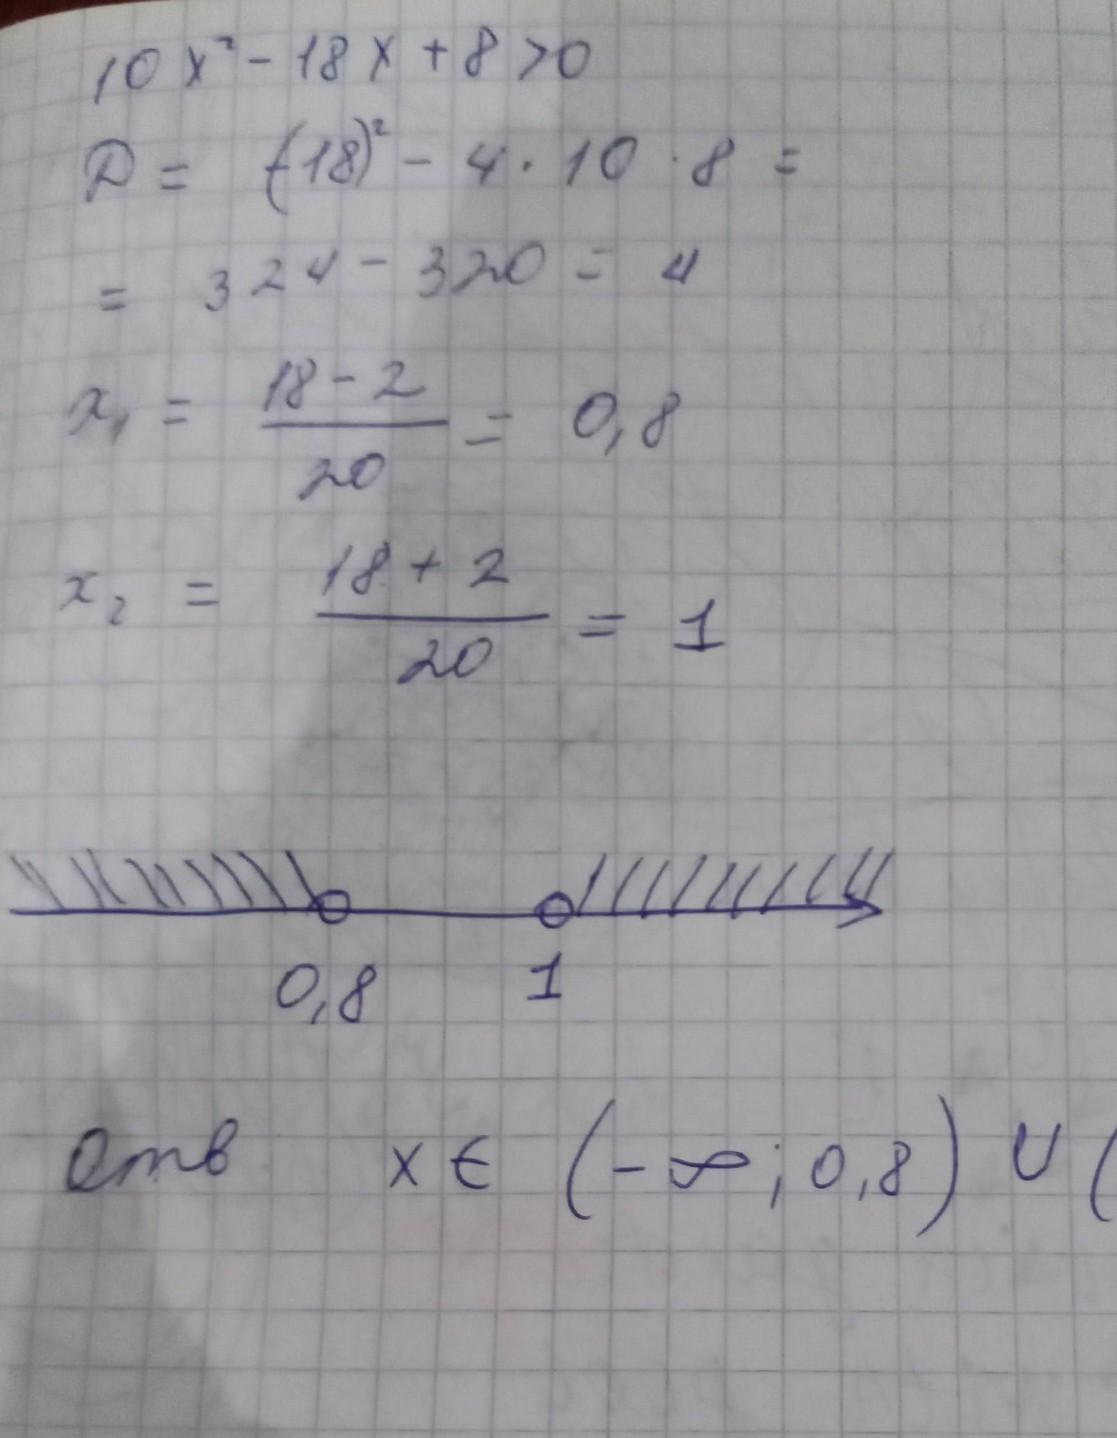 10x² - 18x + 8 > 0
D = (-18)² - 4 · 10 · 8 =
= 324 - 320 = 4
x₁ = \frac{18 - 2}{20} = 0,8
x₂ = \frac{18 + 2}{20} = 1
0,8 1
Отв x ∈ (-∞; 0,8) ∪ (